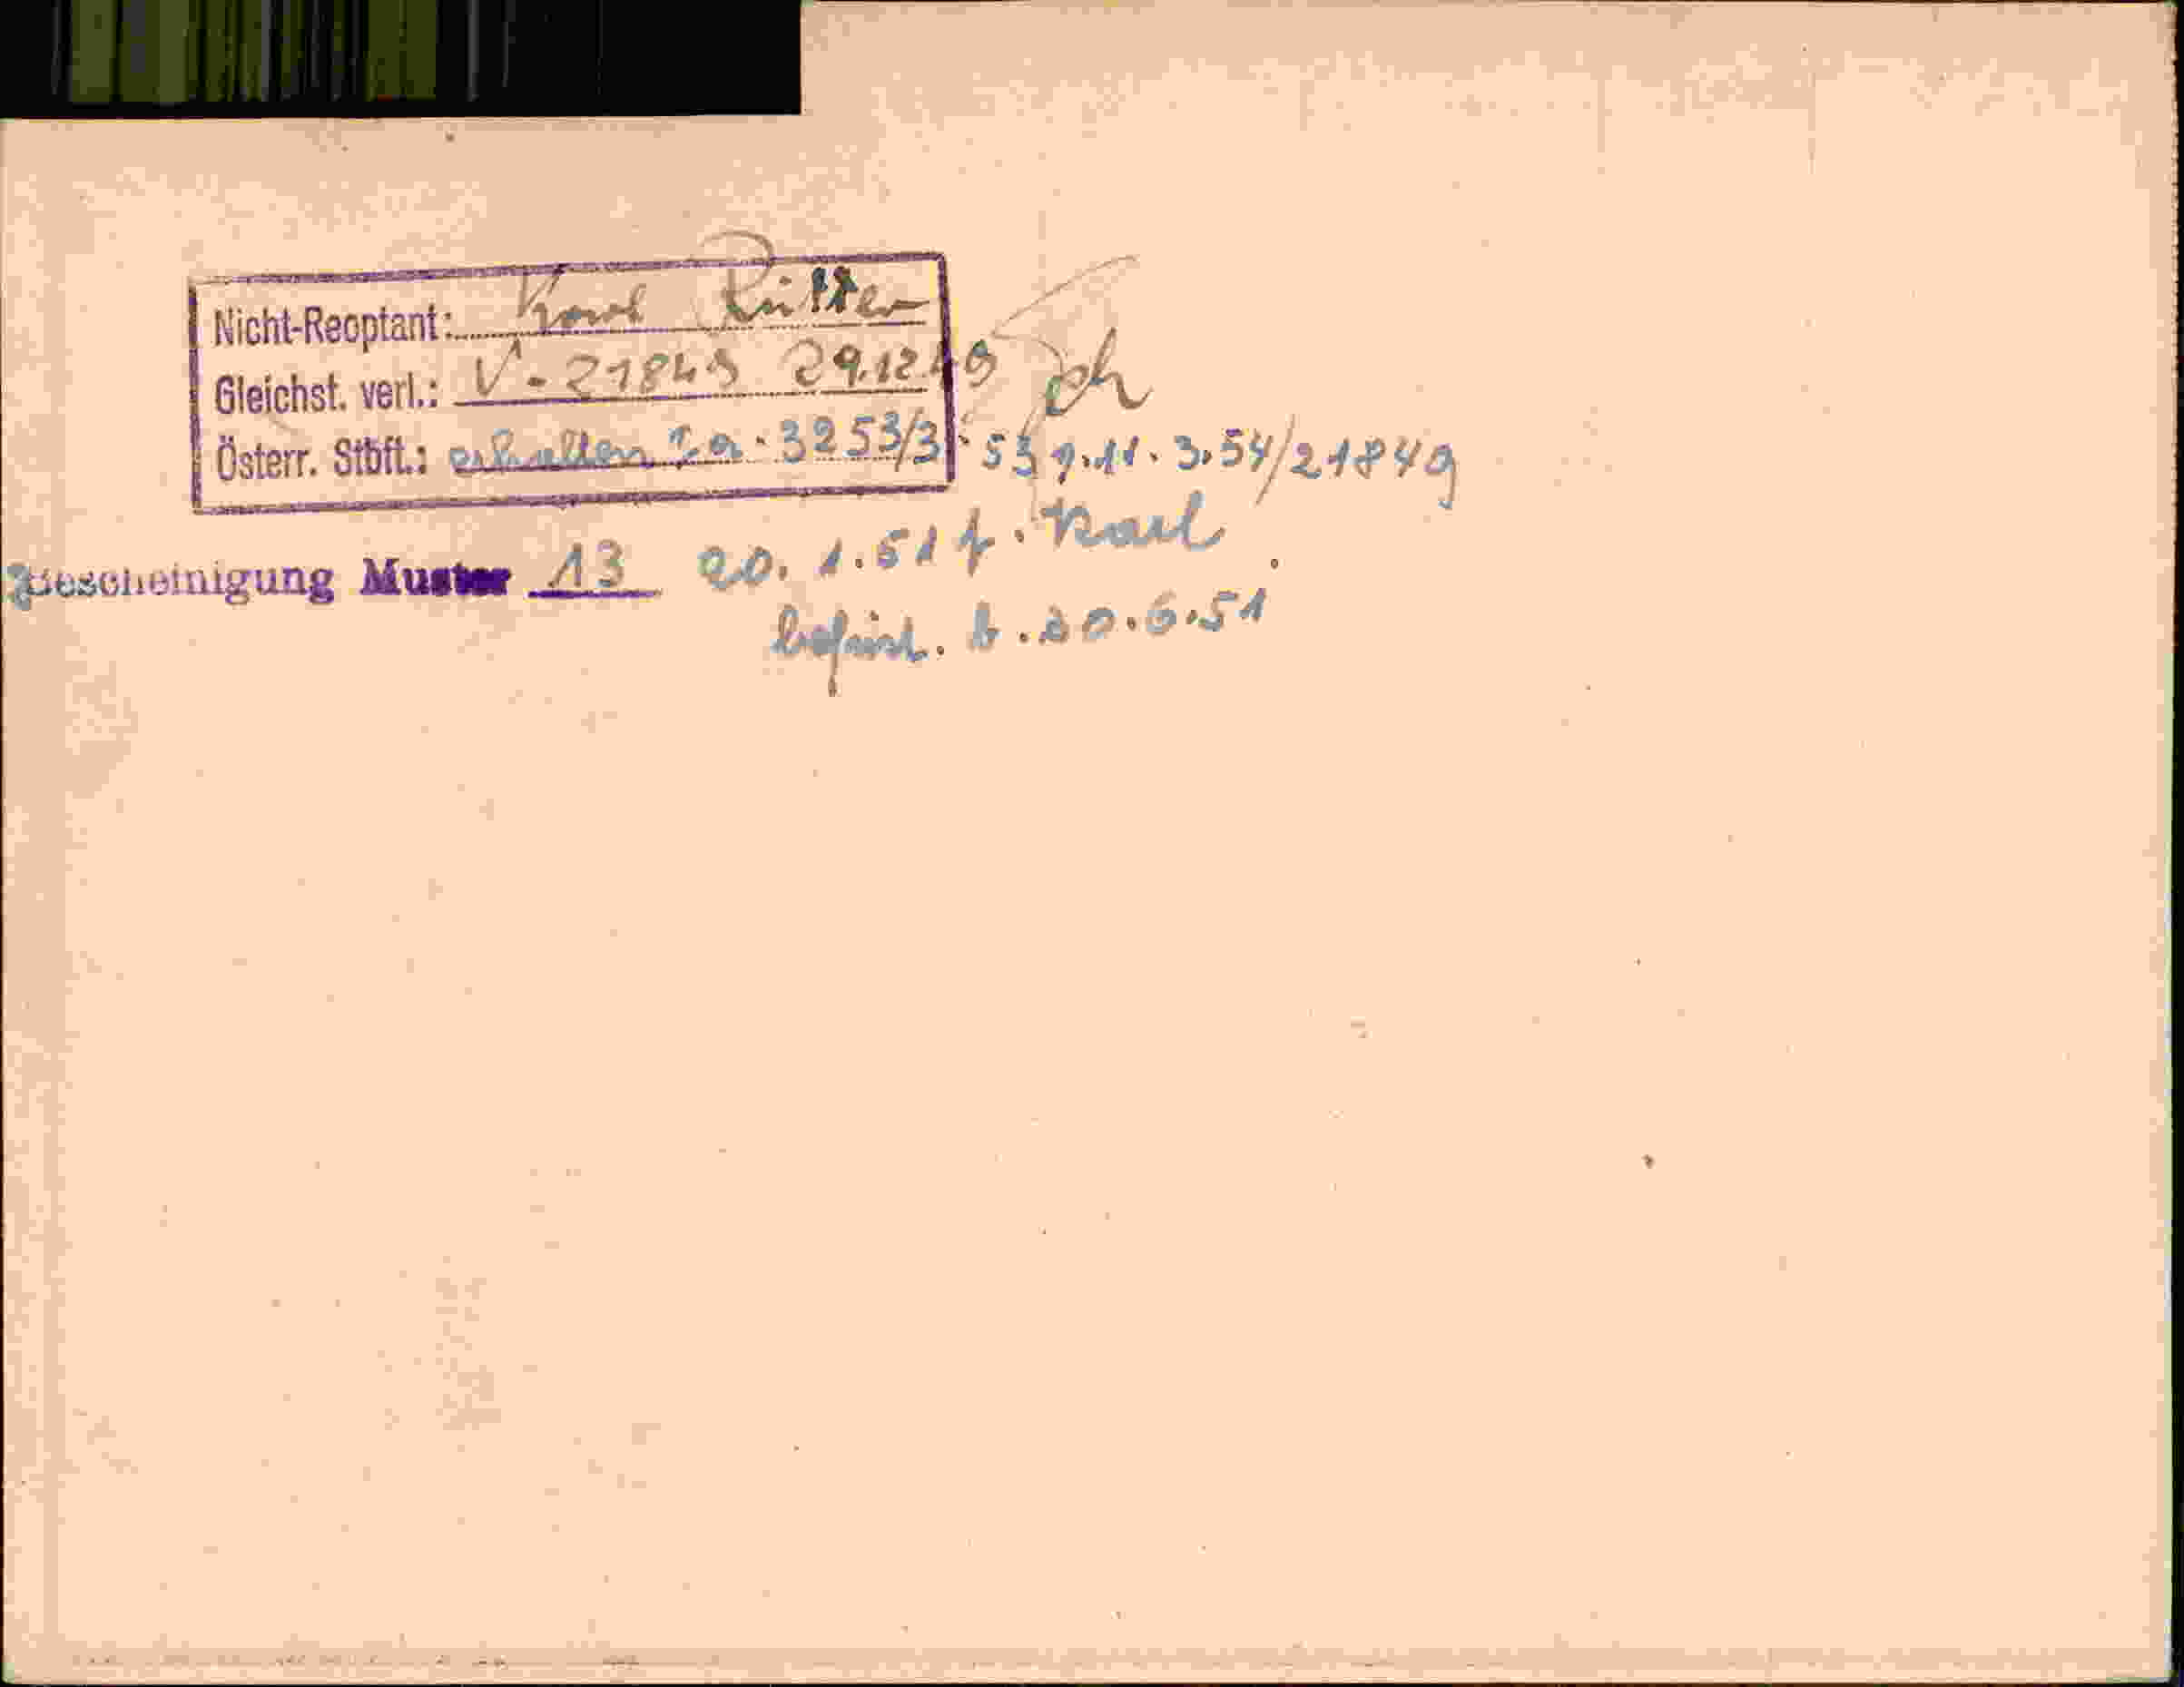 Nicht-Reoptant: Karl Ritter
Gleichst. verl.: V-21849 29.12.49
Österr. Stbft.: erhalten Ia-3253/3-53 v. 11.3.54/21849
Bescheinigung Muster 13 20.1.51 f. Karl
befrist. b. 20.6.51